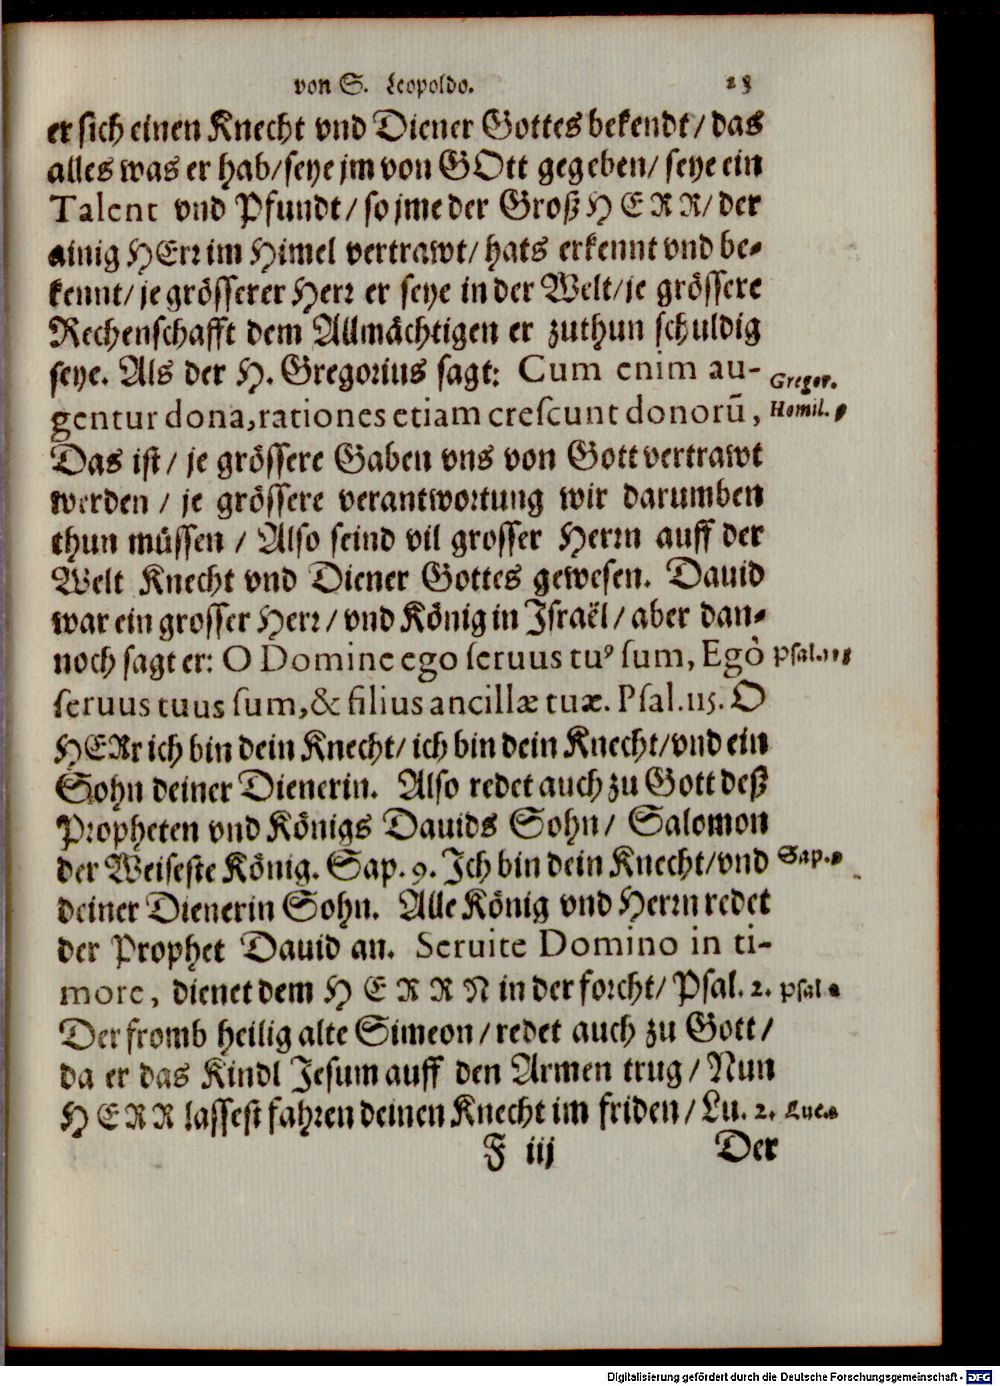 von S. Leopoldo. 23
er sich einen Knecht vnd Diener Gottes bekendt / das
alles was er hab / seye jm von GOtt gegeben / seye ein
Talent vnd Pfundt / so jme der Groß HERR / der
ainig HErr im Himel vertrawt / hats erkennt vnd be-
kennt / je grösserer Herr er seye in der Welt / je grössere
Rechenschafft dem Allmächtigen er zuthun schuldig
seye. Als der H. Gregorius sagt: Cum enim au- Gregor.
gentur dona, rationes etiam crescunt donorũ, Homil.
Das ist / je grössere Gaben vns von Gott vertrawt
werden / je grössere verantwortung wir darumben
thun müssen / Also seind vil grosser Herrn auff der
Welt Knecht vnd Diener Gottes gewesen. Dauid
war ein grosser Herr / vnd König in Israël / aber dan-
noch sagt er: O Domine ego seruus tuꝰ sum, Egò Psal.115
seruus tuus sum, & filius ancillæ tuæ. Psal. 115. O
HERr ich bin dein Knecht / ich bin dein Knecht / vnd ein
Sohn deiner Dienerin. Also redet auch zu Gott deß
Propheten vnd Königs Dauids Sohn / Salomon
der Weiseste König. Sap. 9. Ich bin dein Knecht / vnd Sap.
deiner Dienerin Sohn. Alle König vnd Herrn redet
der Prophet Dauid an. Seruite Domino in ti-
more, dienet dem HERRN in der forcht / Psal. 2. Psal
Der fromb heilig alte Simeon / redet auch zu Gott /
da er das Kindl Jesum auff den Armen trug / Nun
HERR lassest fahren deinen Knecht im friden / Lu. 2. Luc.
F iij Der
Digitalisierung gefördert durch die Deutsche Forschungsgemeinschaft - DFG